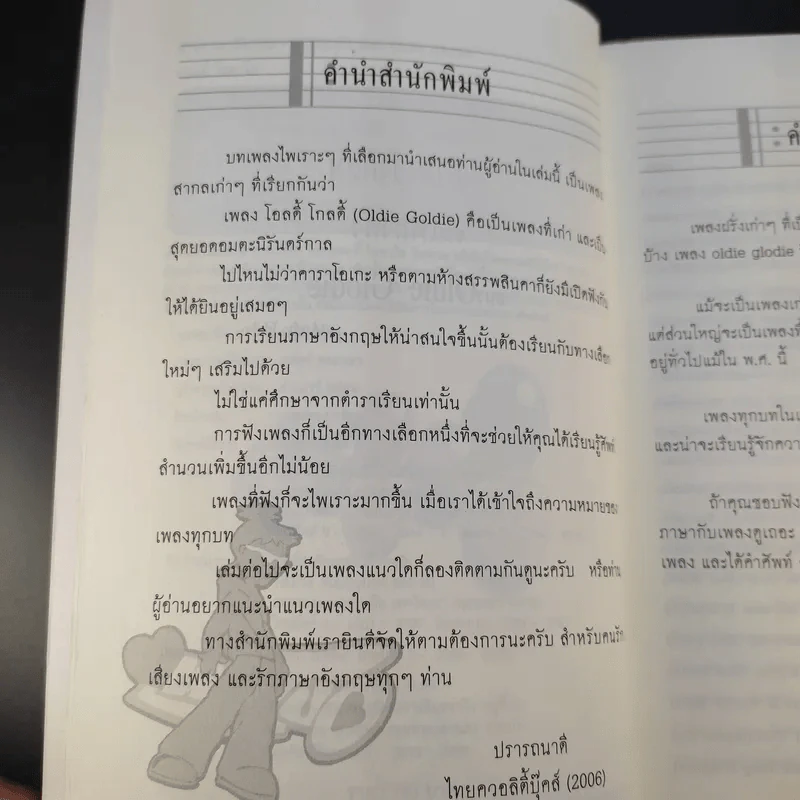 คำนำสำนักพิมพ์
บทเพลงไพเราะๆ ที่เลือกมานำเสนอท่านผู้อ่านในเล่มนี้ เป็นเพลง
สากลเก่าๆ ที่เรียกกันว่า
เพลง โอลดี้ โกลดี้ (Oldie Goldie) คือเป็นเพลงที่เก่า และเป็น
สุดยอดอมตะนิรันดร์กาล
ไปไหนไม่ว่าคาราโอเกะ หรือตามห้างสรรพสินคาก็ยังมีเปิดฟังกัน
ให้ได้ยินอยู่เสมอๆ
การเรียนภาษาอังกฤษให้น่าสนใจขึ้นนั้นต้องเรียนกับทางเลือก
ใหม่ๆ เสริมไปด้วย
ไม่ใช่แค่ศึกษาจากตำราเรียนเท่านั้น
การฟังเพลงก็เป็นอีกทางเลือกหนึ่งที่จะช่วยให้คุณได้เรียนรู้ศัพท์
สำนวนเพิ่มขึ้นอีกไม่น้อย
เพลงที่ฟังก็จะไพเราะมากขึ้น เมื่อเราได้เข้าใจถึงความหมายของ
เพลงทุกบท
เล่มต่อไปจะเป็นเพลงแนวใดก็ลองติดตามกันดูนะครับ หรือท่าน
ผู้อ่านอยากแนะนำแนวเพลงใด
ทางสำนักพิมพ์เรายินดีจัดให้ตามต้องการนะครับ สำหรับคนรัก
เสียงเพลง และรักภาษาอังกฤษทุกๆ ท่าน
ปรารถนาดี
ไทยควอลิตี้บุ๊คส์ (2006)
เพลงฝรั่งเก่าๆ ที่
บ้าง เพลง oldie glodie
แม้จะเป็นเพลงเก่
แต่ส่วนใหญ่จะเป็นเพลงที่
อยู่ทั่วไปแม้ใน พ.ศ. นี้
เพลงทุกบทในเ
และน่าจะเรียนรู้จักความ
ถ้าคุณชอบฟัง
ภาษากับเพลงดูเถอะ
เพลง และได้คำศัพท์